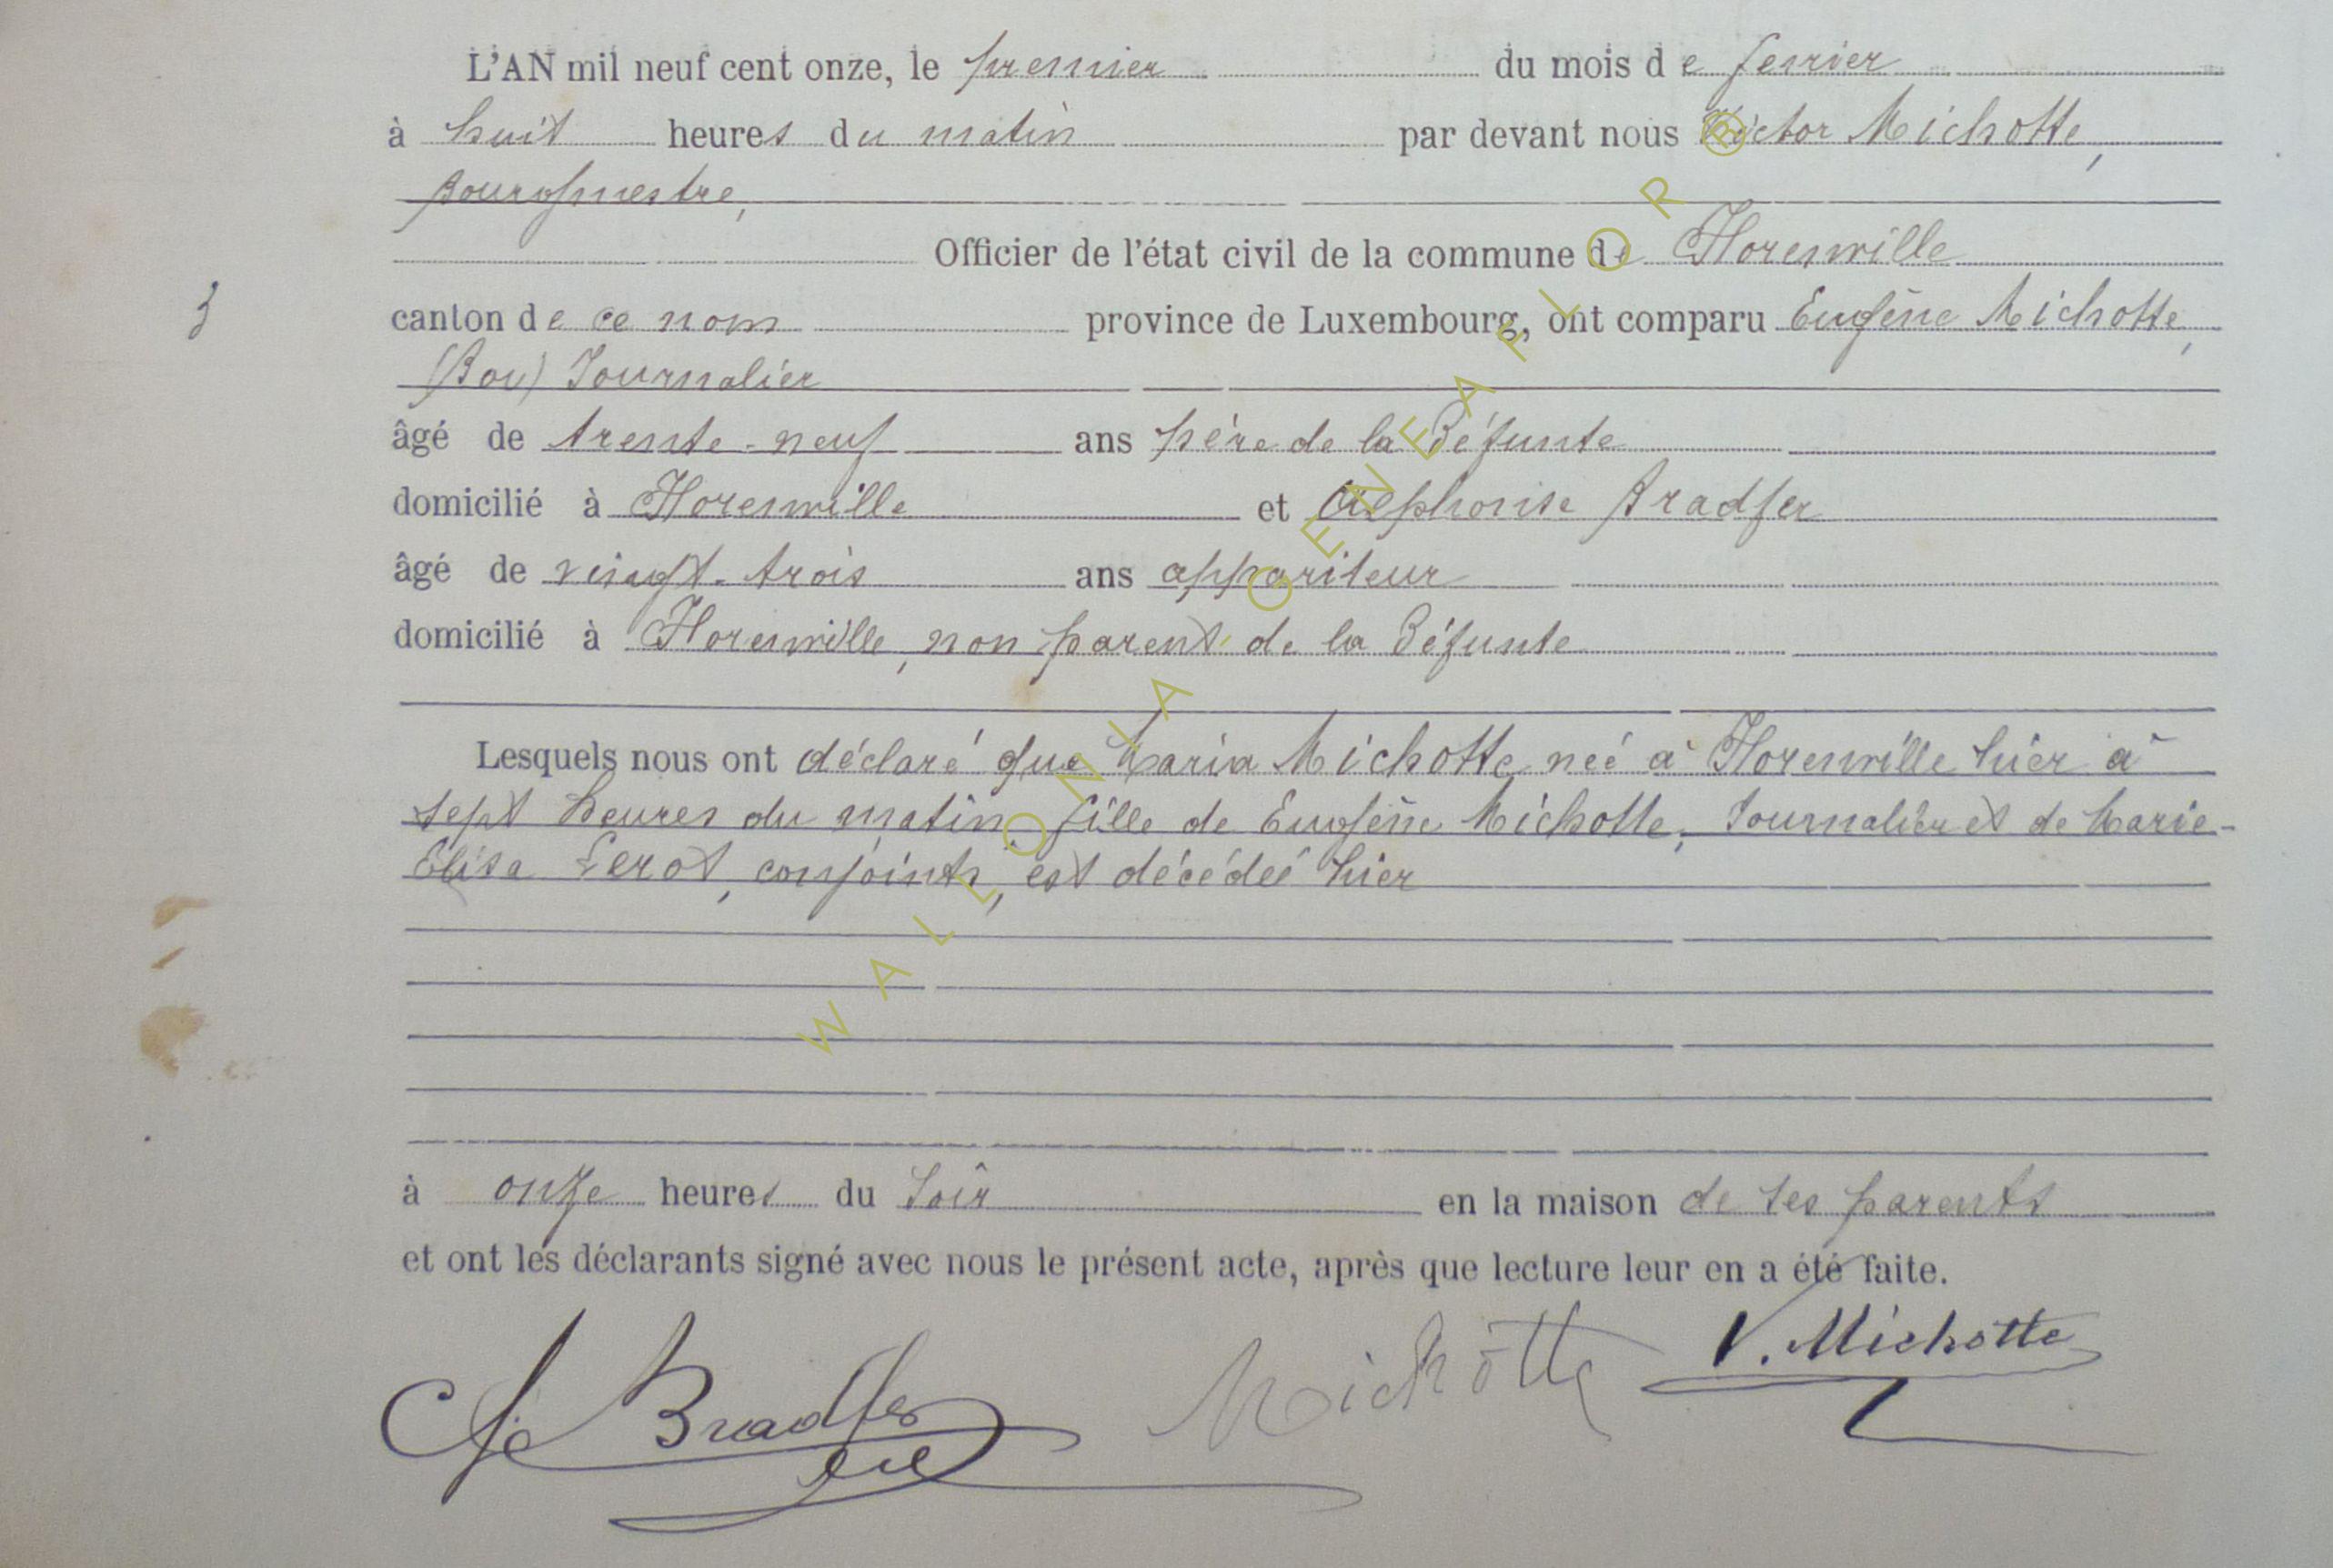 L'AN mil neuf cent onze, le premier du mois de fevrier
à huit heures du matin par devant nous Victor Michotte,
Bourgmestre,
Officier de l'état civil de la commune de Florenville
3
canton de ce nom province de Luxembourg, ont comparu Eugène Michotte,
(Bou) Journalier
âgé de trente-neuf ans père de la Défunte
domicilié à Florenville et Alphonse Bradfer
âgé de vingt-trois ans appariteur
domicilié à Florenville, non parent de la Défunte
Lesquels nous ont déclaré que Maria Michotte, neé à Florenville hier à
sept heures du matin, fille de Eugène Michotte, Journalier et de Marie-
Elisa Lerot, conjoints, est décédeé hier
à onze heures du soir en la maison de ses parents
et ont les déclarants signé avec nous le présent acte, après que lecture leur en a été faite.
Bradfer Michotte V. Michotte
WALLONIA GENEAFLOR ®